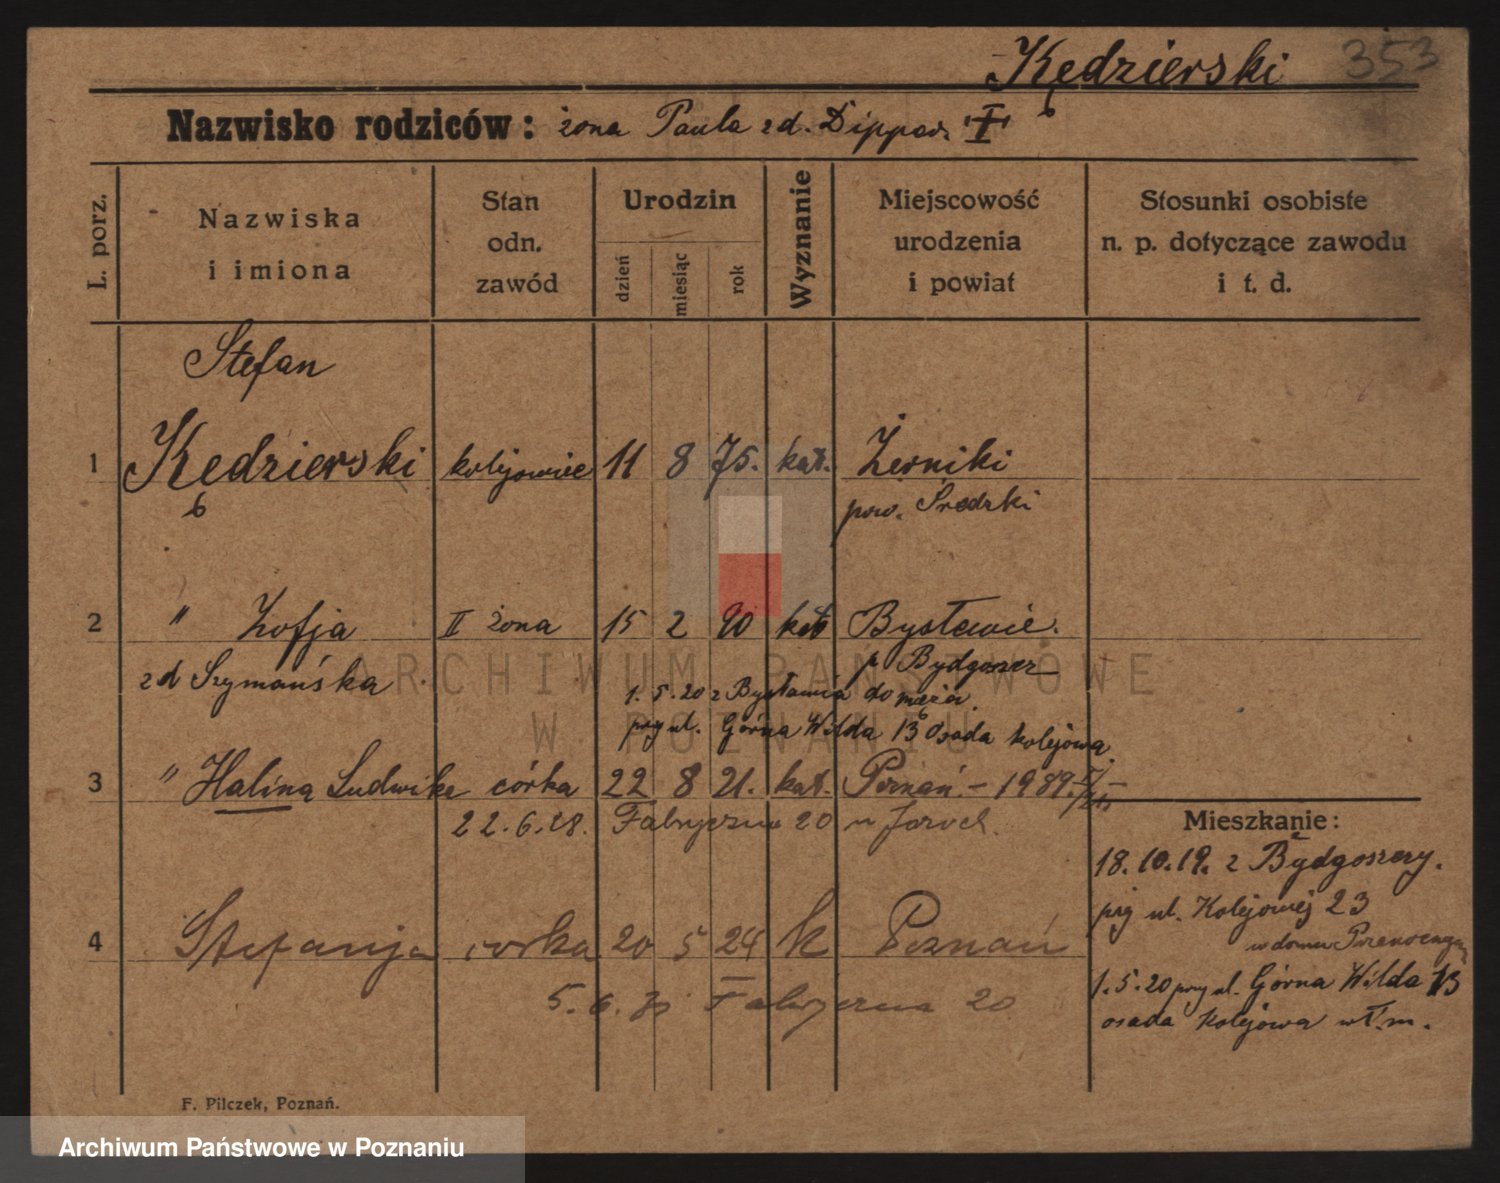 Kędzierski 353
Nazwisko rodziców: żona Paula zd. I
L. porz.
Nazwiska
i imiona
Stan
odn.
zawód
Urodzin
dzień
miesiąc
rok
Wyznanie
Miejscowość
urodzenia
i powiat
Stosunki osobiste
n. p. dotyczące zawodu
i t. d.
Stefan
1 Kędzierski kolejowiec 11 8 75. kat. Żerniki
pow. Średzki
2 " Zofja II żona 15 2 90 kat
p Bydgoszcz
zd Szymańska
1.5.20 z do męża
przy ul. Górna Wilda 13 Osada kolejowa
3 " Halina Ludwika córka 22 8 21. kat. Poznań - 1989.
22.6.28. Fabryczna 20
4 Stefanja córka 20 5 24 k Poznań
5.6. Fabryczna 20
Mieszkanie:
18.10.19. z Bydgoszczy.
przy ul. Kolejowej 23
w domu
1.5.20 przy ul. Górna Wilda 13
osada kolejowa wł. m.
F. Pilczek, Poznań.
ARCHIWUM PAŃSTWOWE
W POZNANIU
Archiwum Państwowe w Poznaniu